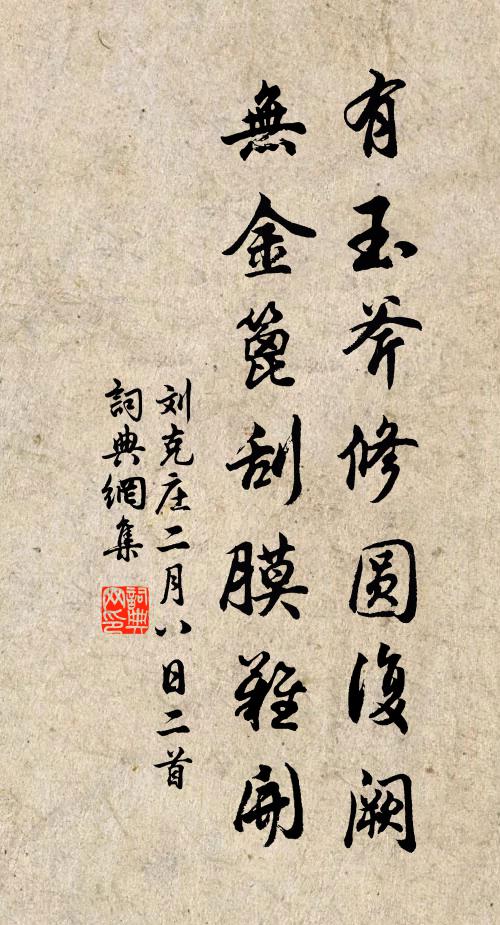 有玉斧修圆復阙
無金篦刮膜難開
刘克庄二月八日二首
詞典網集
詞典网印